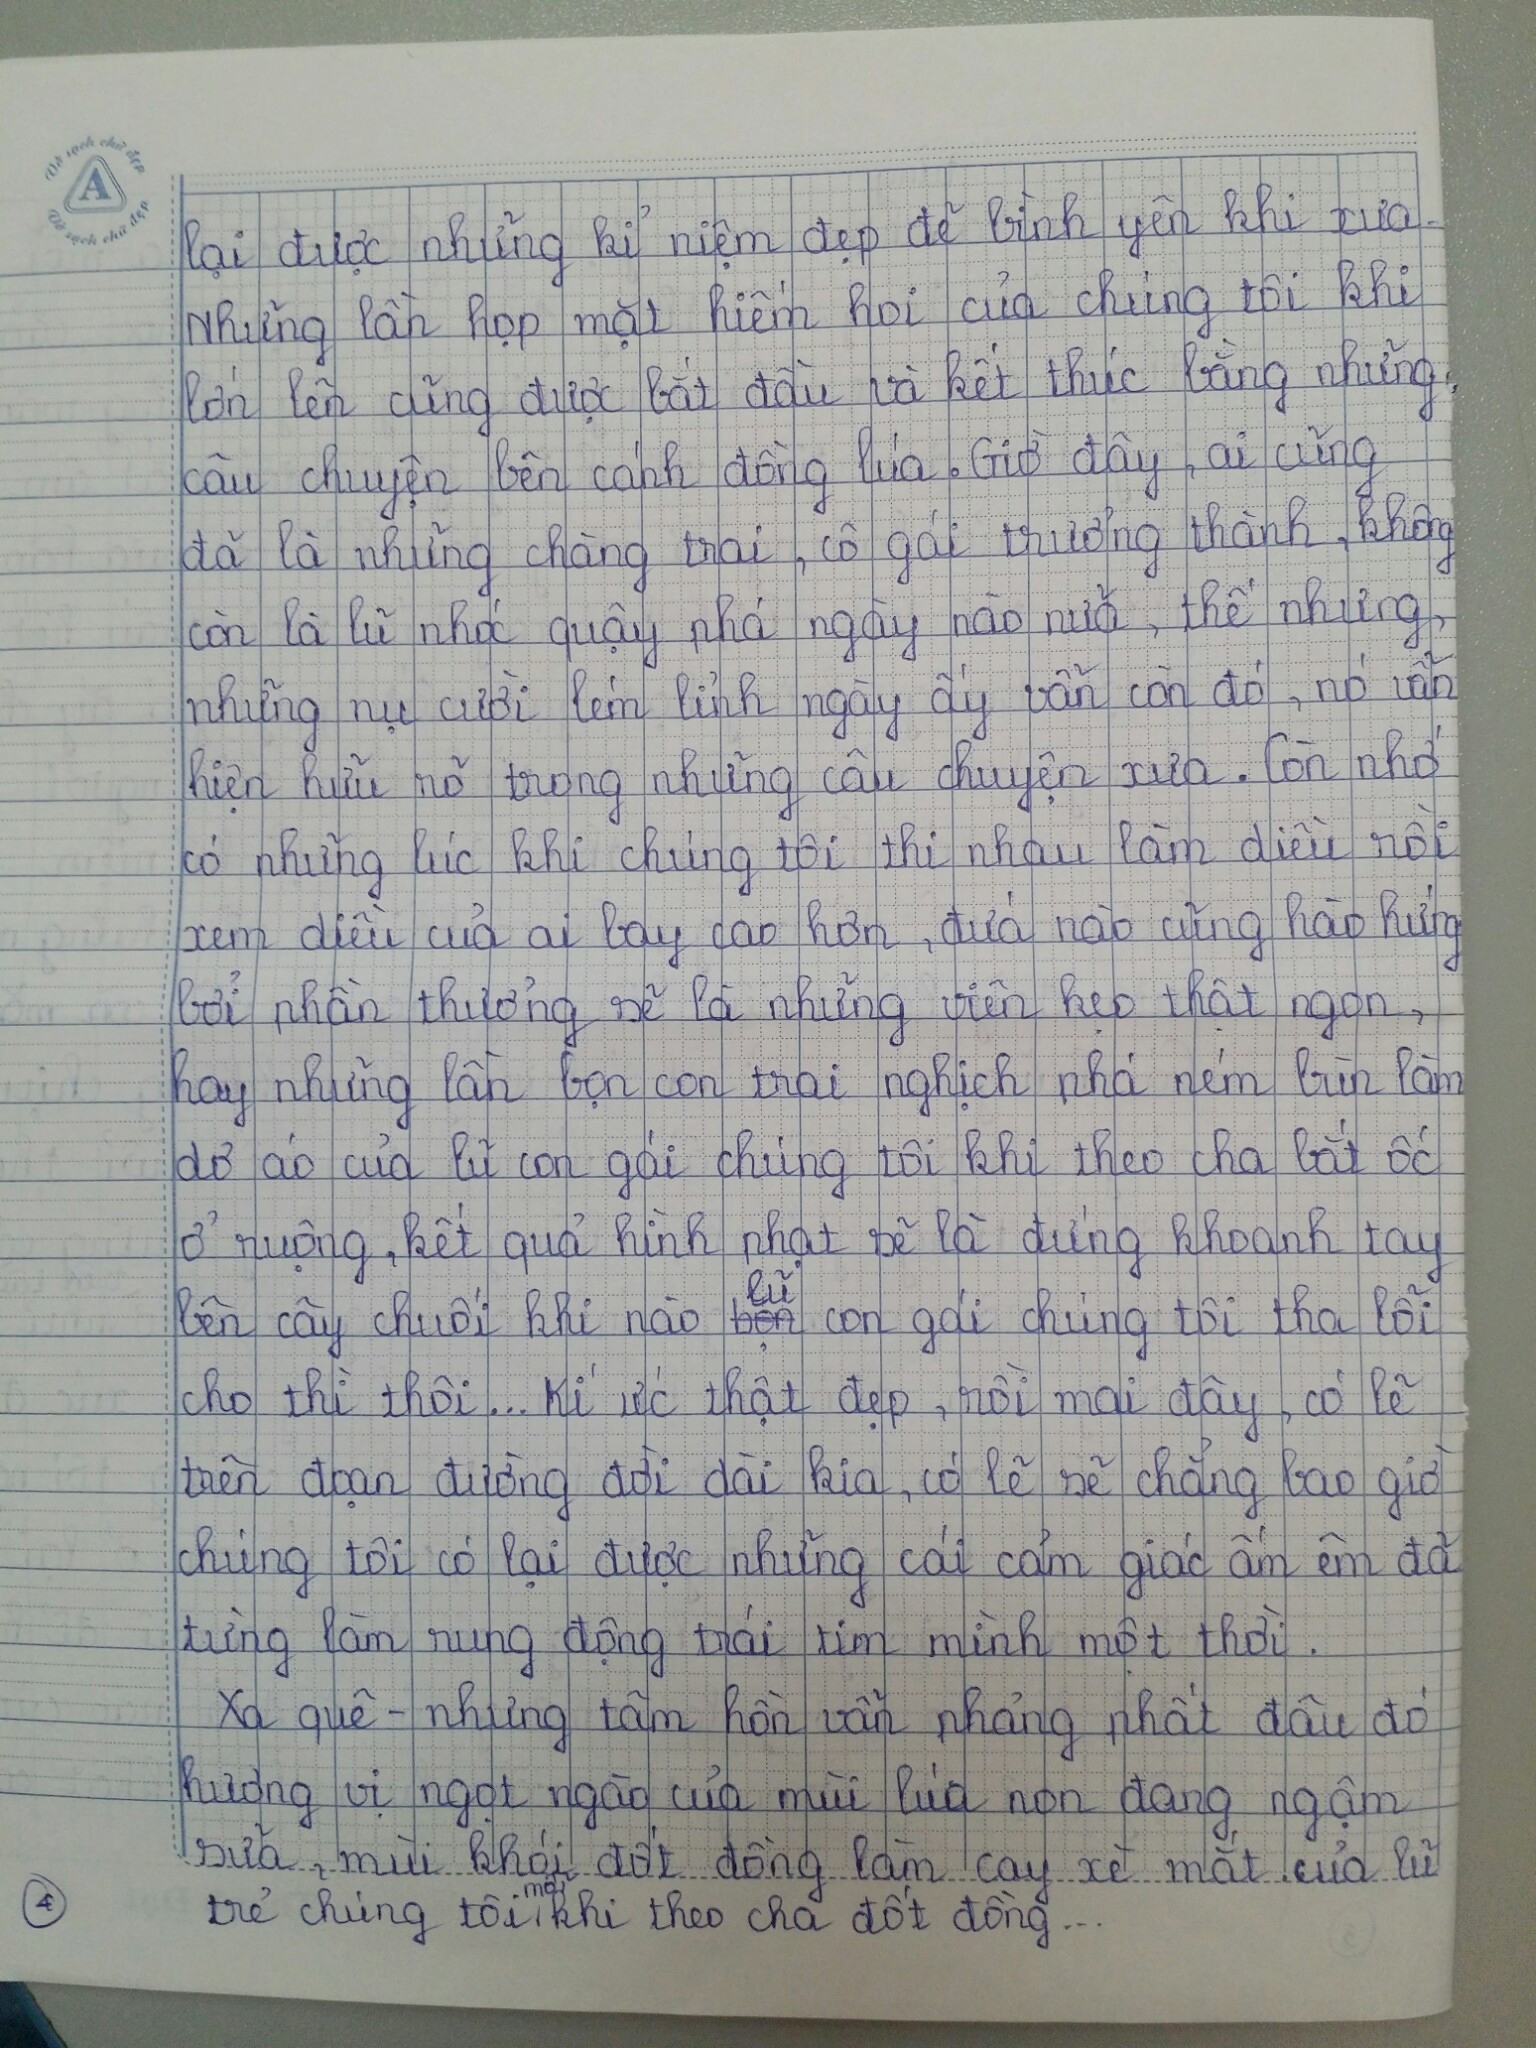 Vở sạch chữ đẹp
A
Vở sạch chữ đẹp
lại được những kỉ niệm đẹp đẽ bình yên khi xưa.
Những lần họp mặt hiếm hoi của chúng tôi khi
lớn lên cũng được bắt đầu và kết thúc bằng những
câu chuyện bên cánh đồng lúa. Giờ đây, ai cũng
đã là những chàng trai, cô gái trưởng thành, không
còn là lũ nhóc quậy phá ngày nào nữa, thế nhưng,
những nụ cười lém lỉnh ngày ấy vẫn còn đó, nó vẫn
hiện hữu rõ trong những câu chuyện xưa. Còn nhớ
có những lúc khi chúng tôi thi nhau làm diều rồi
xem diều của ai bay cao hơn, đứa nào cũng hào hứng
bởi phần thưởng sẽ là những viên kẹo thật ngon,
hay những lần bọn con trai nghịch phá ném bùn làm
dơ áo của lũ con gái chúng tôi khi theo cha bắt ốc
ở ruộng, kết quả hình phạt sẽ là đứng khoanh tay
bên cây chuối khi nào lũ con gái chúng tôi tha lỗi
cho thì thôi... Kí ức thật đẹp, rồi mai đây, có lẽ
trên đoạn đường đời dài kia, có lẽ sẽ chẳng bao giờ
chúng tôi có lại được những cái cảm giác ấm êm đã
từng làm rung động trái tim mình một thời.
Xa quê - nhưng tâm hồn vẫn phảng phất đâu đó
hương vị ngọt ngào của mùi lúa non đang ngậm
sữa, mùi khói đốt đồng làm cay xè mắt của lũ
trẻ chúng tôi mỗi khi theo cha đốt đồng...
4